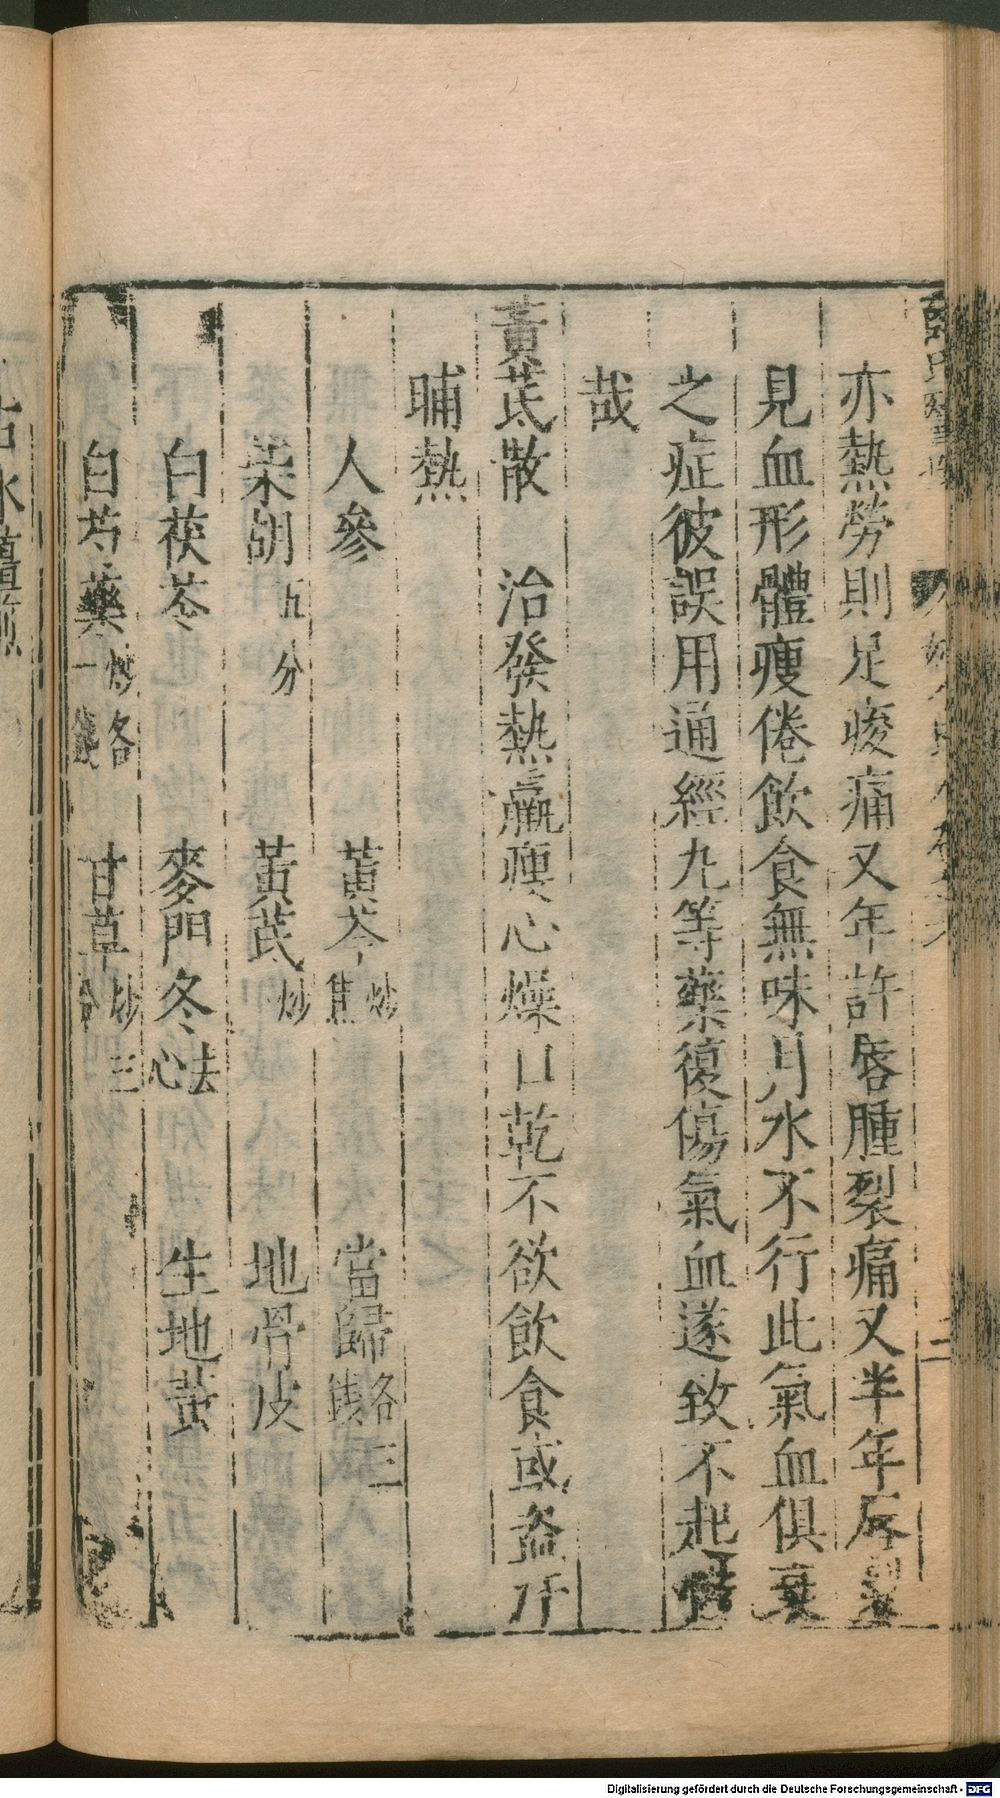 亦熱勞則足痠痛又年許唇腫裂痛又半年唇裂
見血形體瘦倦飲食無味月水不行此氣血俱衰
之症彼誤用通經丸等藥復傷氣血遂致不起惜
哉
黃茋散 治發熱羸瘦心燥口乾不欲飲食或盗汗
晡熱
人參 黃芩炒焦 當歸各三錢
柴胡五分 黃茋炒 地骨皮
白茯苓 麥門冬去心 生地黃
白芍藥炒各一錢 甘草炒三分
Digitalisierung gefördert durch die Deutsche Forschungsgemeinschaft - DFG